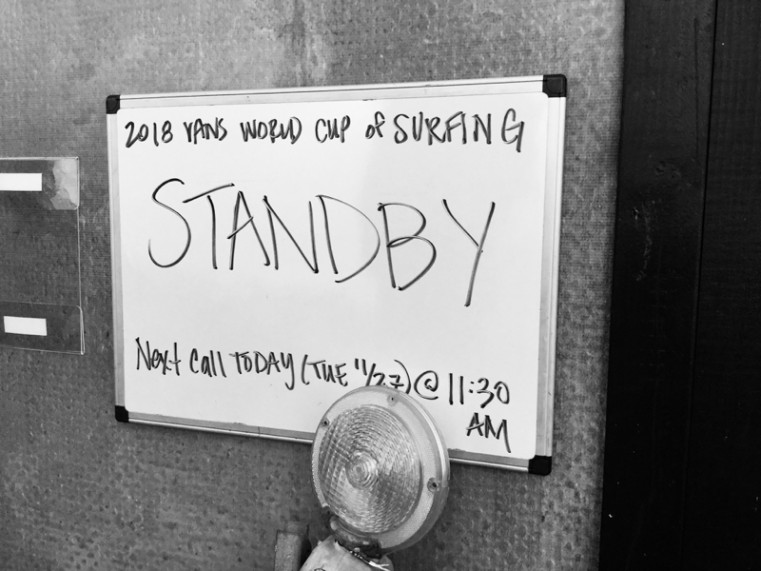 2018 VANS WORLD CUP of SURFING
STANDBY
Next Call TODAY (TUE 11/27) @ 11:30
AM